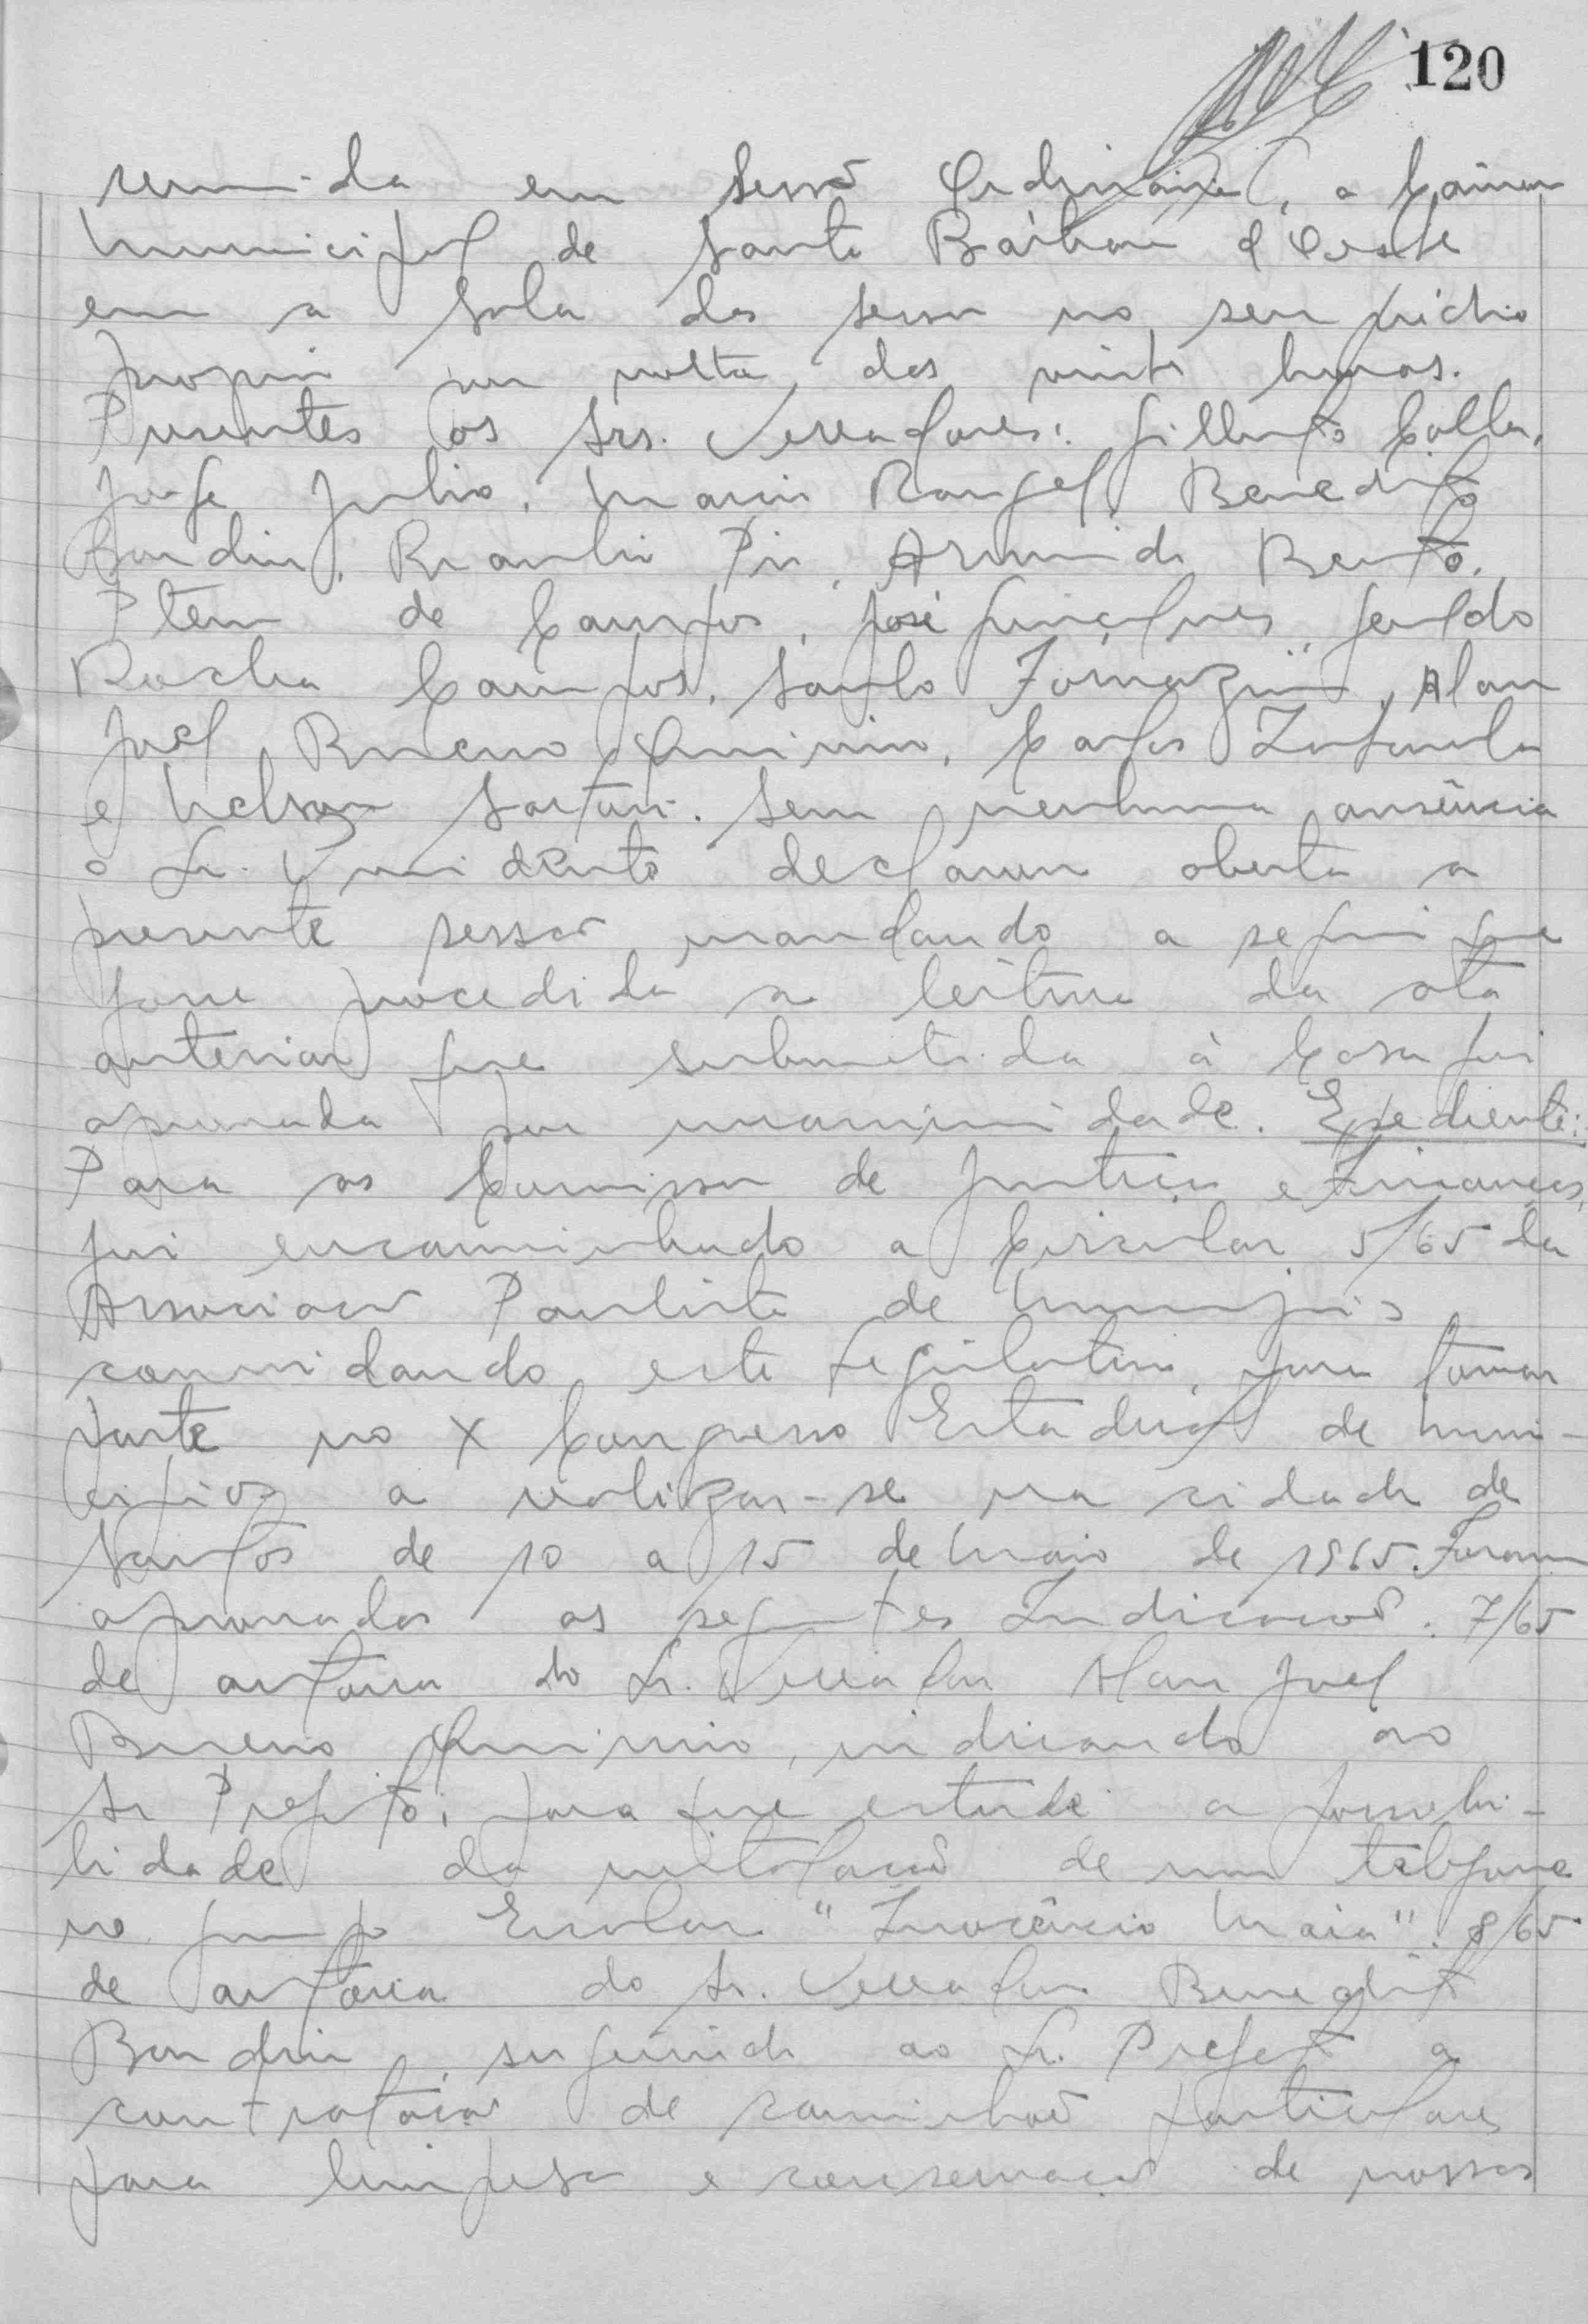 120
reunida em sessão Ordinaria, a Câmara
Municipal de Santa Bárbara d'Oeste
em a sala das sessoes no seu prédio
proprio em volta das vinte horas.
Presentes os Srs. Vereadores: Gilberto Colla,
Jorge Julio, Mario Rangel, Benedito
Bondin, Braulio Pio, Armindo Bento,
de Campos, José Gonçalves, Geraldo
Rocha Campos, Santo Fornazin, Alan
Joel Bueno Quirino, Carlos
e Nelson Sartori. Sem nenhuma ausência
o Sr. Presidente declarou aberta a
presente sessão mandando a seguir que
fosse procedida a leitura da ata
anterior que submetida à Casa foi
aprovada por unanimidade. Expediente:
Para as Comissoes de Justiça e Finanças,
foi encaminhado a Circular 5/65 da
Associacao Paulista de Municipios
convidando este Legislativo, para tomar
parte no X Congresso Estadual de Muni-
cipios a realizar-se na cidade de
Santos de 10 a 15 de Maio de 1965. Foram
aprovadas as seguintes Indicacoes: 7/65
de autoria do Sr. Vereador Alan Joel
Bueno Quirino, indicando ao
Sr Prefeito, para que estude a possibi-
lidade da instalacao de um telefone
no Grupo Escolar "Inocêncio Maia". 8/65
de autoria do Sr. Vereador Benedito
Bondin, sugerindo ao Sr. Prefeito a
contratacao de caminhoes particulares
para limpesa e conservacao de nossas